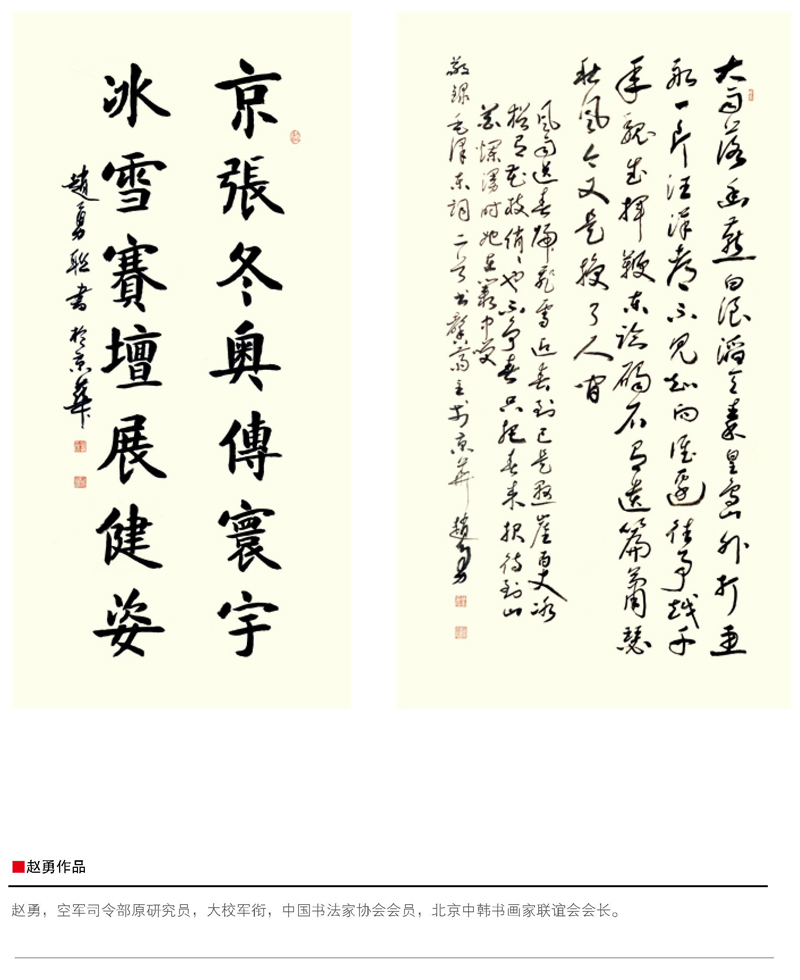 京張冬奥傳寰宇
冰雪賽壇展健姿
趙勇聯書於京華
大雨落幽燕白浪滔天秦皇島外打魚
船一片汪洋都不見知向誰邊往事越千
年魏武揮鞭東臨碣石有遺篇蕭瑟
秋風今又是換了人間
風雨送春歸飛雪迎春到已是懸崖百丈冰
猶有花枝俏々也不爭春只把春來報待到山
花爛漫時她在叢中笑
敬録毛澤東詞二首書京華趙勇
赵勇作品
赵勇，空军司令部原研究员，大校军衔，中国书法家协会会员，北京中韩书画家联谊会会长。